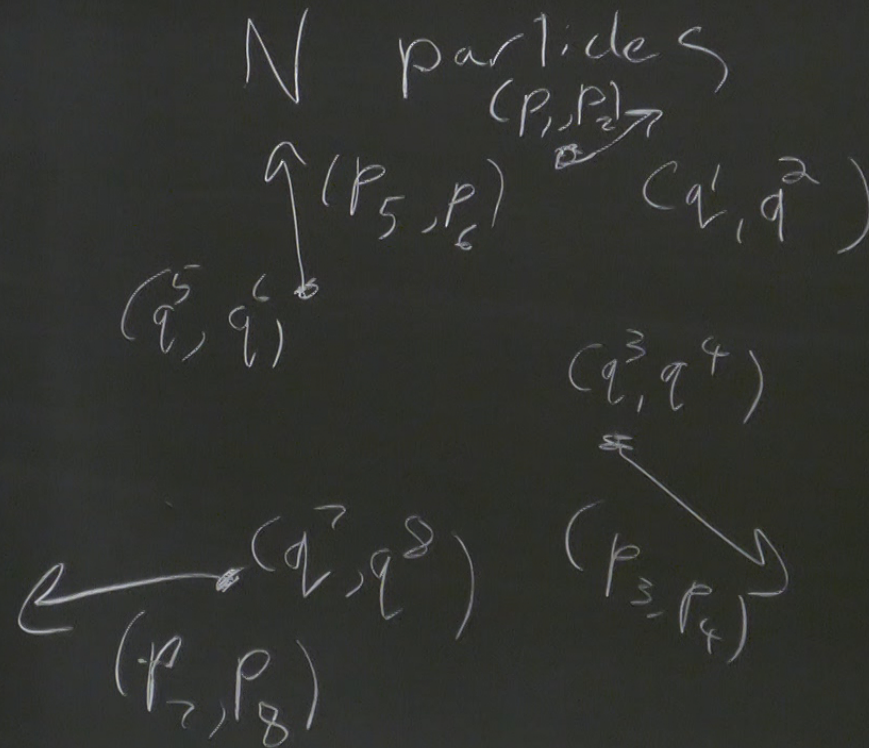 N particles
(p₁, p₂)
(p₅, p₆)
(q¹, q²)
(q⁵, q⁶)
(q³, q⁴)
(q⁷, q⁸)
(p₃, p₄)
(p₇, p₈)